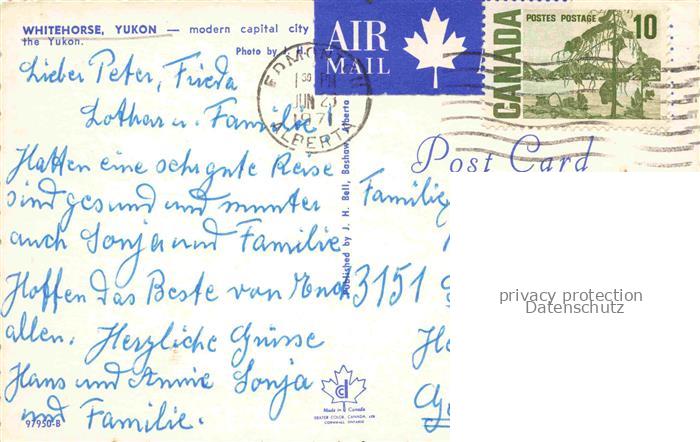 WHITEHORSE, YUKON — modern capital city
the Yukon.
Photo by J. H.
AIR
MAIL
CANADA
POSTES POSTAGE
10
EDMONTON
PM
JUN 23
197
ALBERTA
Lieber Peter, Frieda
Lothar u. Familie
Hatten eine sehr gute Reise
sind gesund und munter
auch Sonja und Familie
Hoffen das Beste von Euch
allen. Herzliche Grüsse
Hans und Annie Sonja
und Familie.
97950-B
Published by J. H. Bell, Bashaw, Alberta
Made in Canada
DEXTER COLOR, CANADA, LTD
CORNWALL ONTARIO
Post Card
Familie
3151
privacy protection
Datenschutz